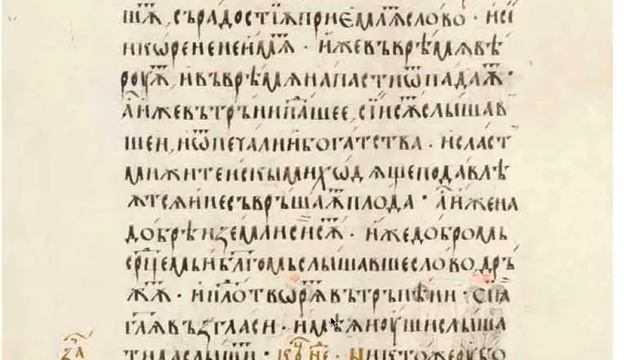 шѫ, съ радостїѫ приємлѧ слово · и сїи
и корене не имѧ · иже въ врѣмѧ вѣ
роуѫ, и въ врѣмѧ напасти ѿпадаѫ ·
а иже въ трънїи падшее, сїи сѫ слышав
шеи, и ѿ печали и богатства · и сласт
ми житеискыми ходѧше подавлѣ
ѫтсѧ и не съвръшаѫ плода · а иже на
добрѣи земли сии сѫ · иже добромь
срцемь и блгомь слышавше слово, дръ
жѫ · и плѡ творѧ въ трьпѣни · сїа
глаꙗ възгласи · имѣѧи оуши слыша
ти да слыши · никтоже оубо